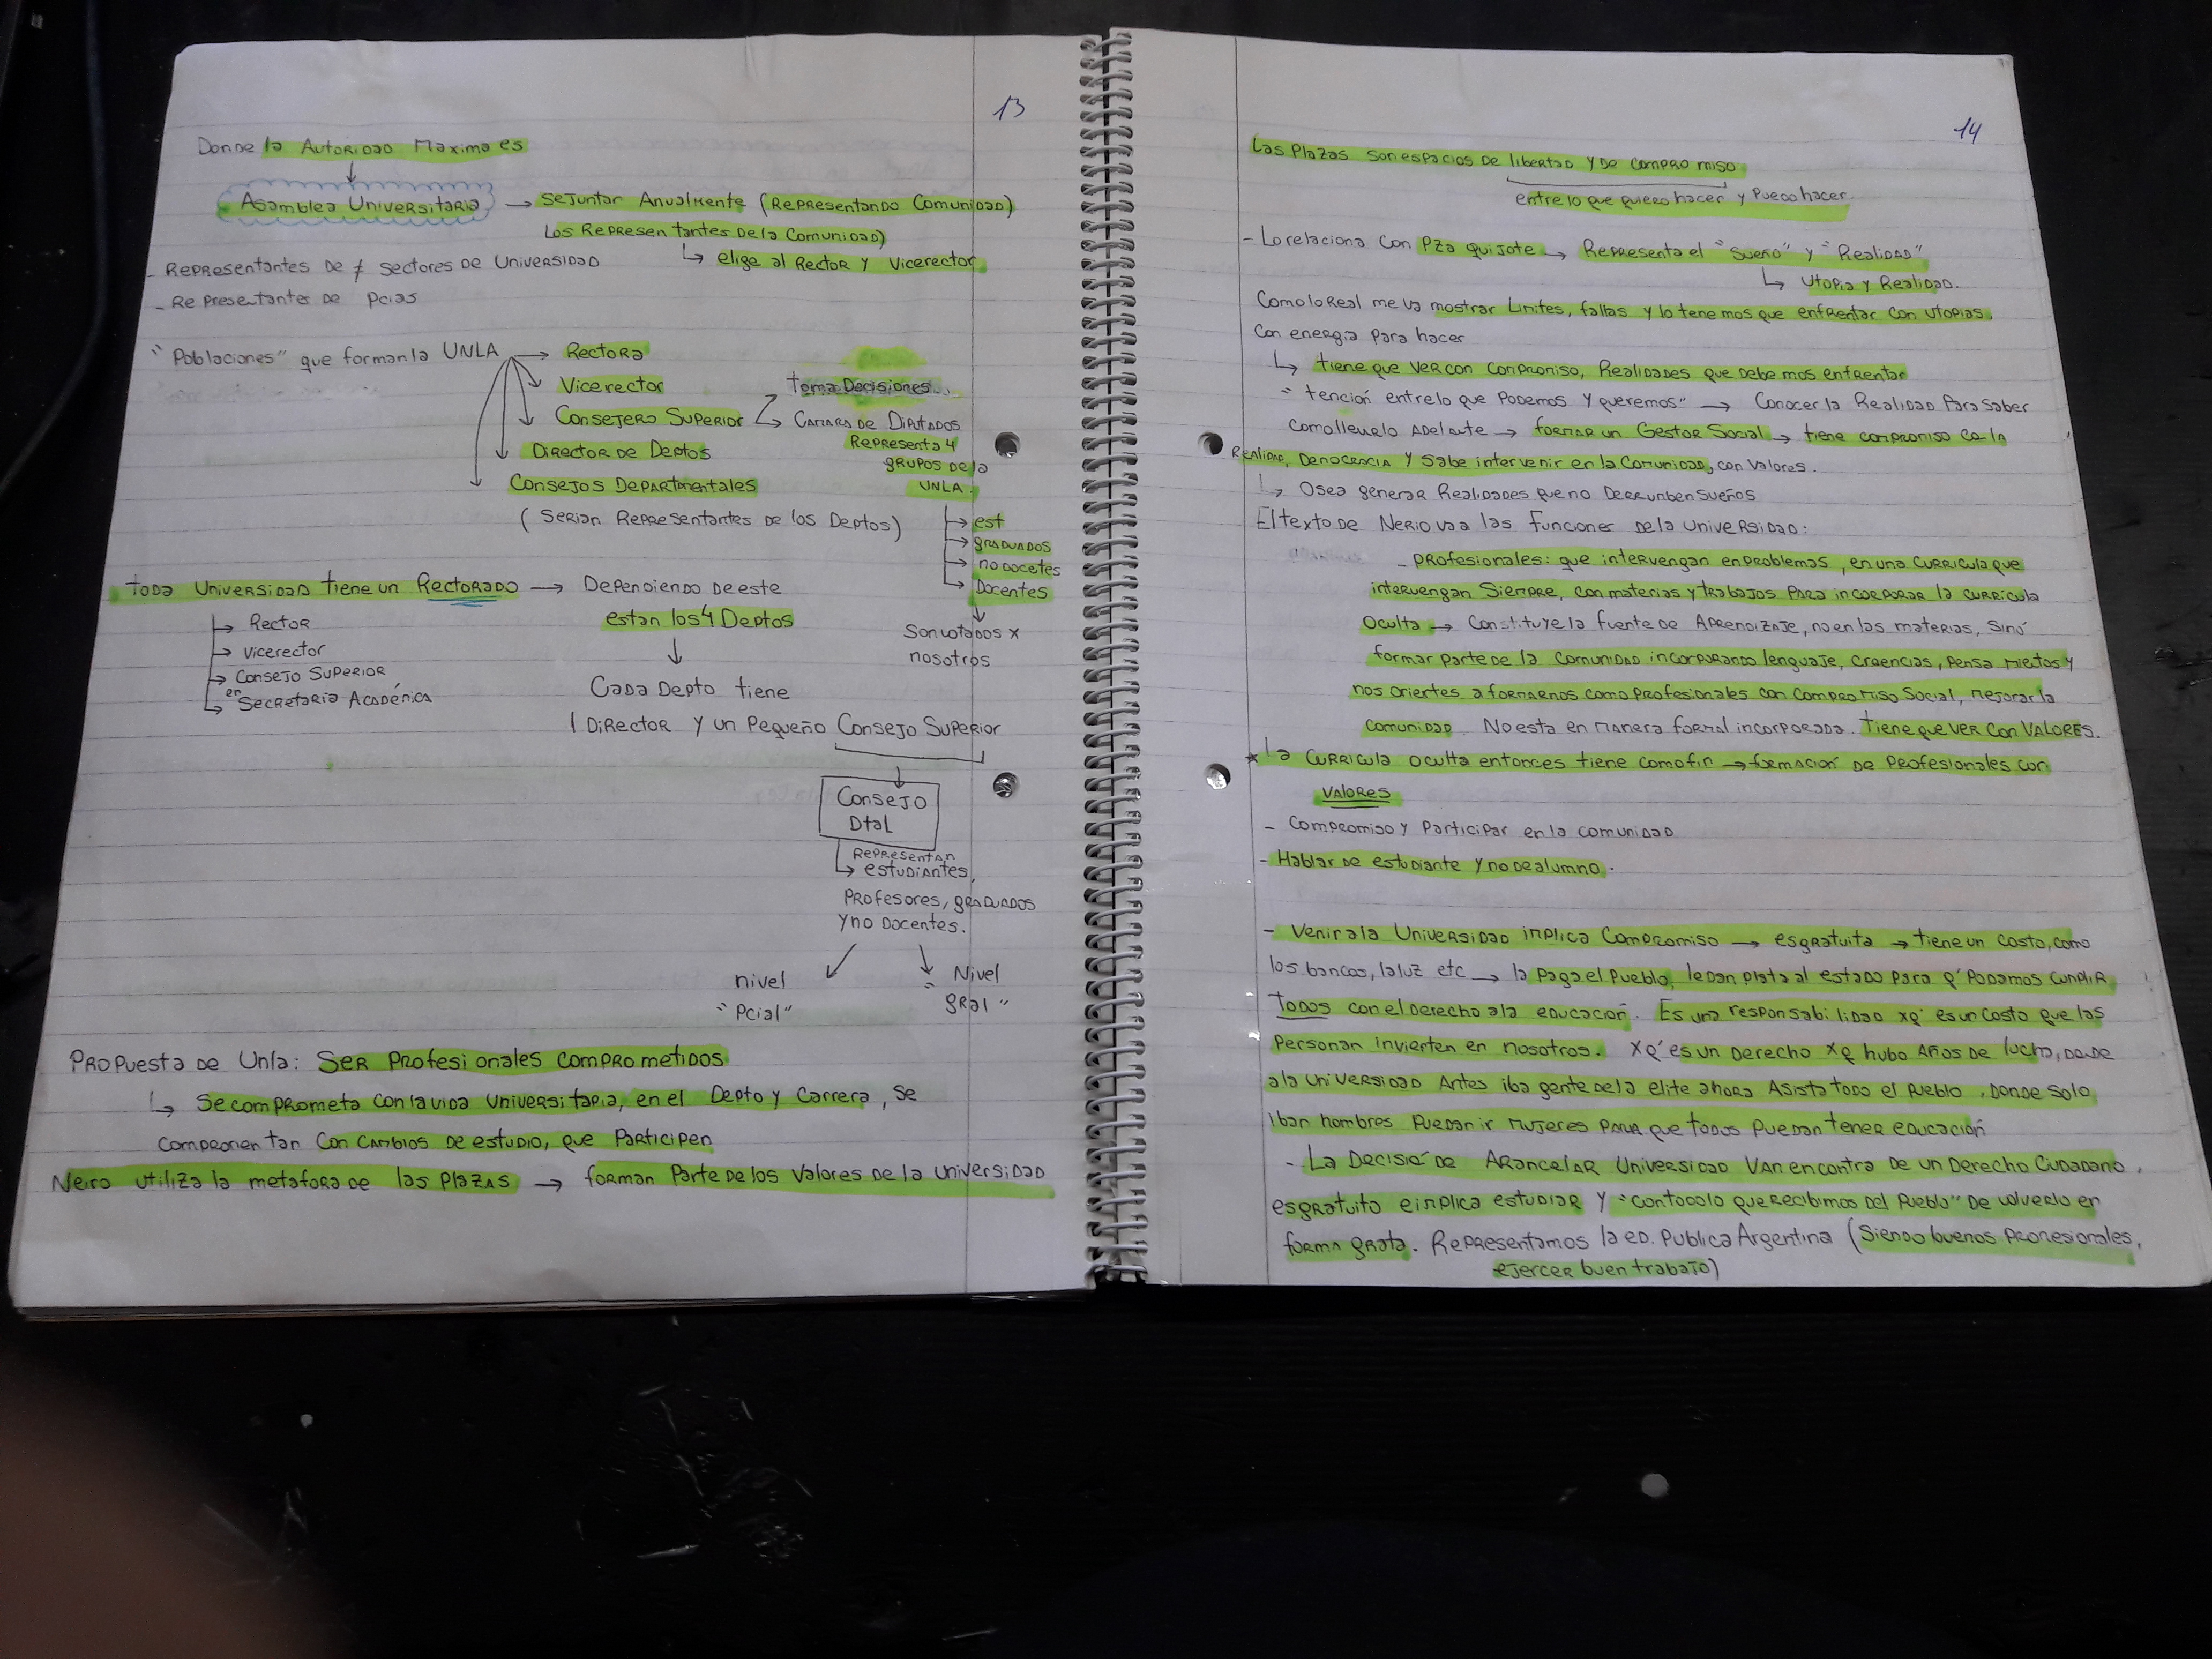 13
Donde la Autoridad Maxima es
↓
Asamblea Universitaria → se juntar Anualmente (Representando Comunidad)
Los Representantes de la Comunidad)
↳ elige al Rector y Vicerector
- Representantes de ≠ sectores de Universidad
- Representantes de Pcias
"Poblaciones" que forman la UNLA → Rectora
Vicerector
toma Decisiones..
Consejero Superior
Camara de Diputados
Representa 4
grupos de la
UNLA.
Director de Deptos
Consejos Departmentales
(Serian Representantes de los Deptos)
→ est
→ graduados
→ no docetes
→ Docentes
↓
Son votados x
nosotros
toda Universidad tiene un Rectorado → Dependiendo de este
estan los 4 Deptos
→ Rector
→ vicerector
→ Consejo Superior
en
→ Secretaria Académica
↓
Cada Depto tiene
1 Director y un Pequeño Consejo Superior
↓
Consejo
Dtal
Representan
↳ estudiantes,
Profesores, graduados
y no Docentes.
nivel
"Pcial"
Nivel
"gral"
Propuesta de Unla: Ser Profesionales comprometidos
↳ Se comprometa con la vida Universitaria, en el Depto y Carrera, se
comprometan con cambios de estudio, que Participen
Neiro utiliza la metafora de las Plazas → forman Parte de los Valores de la Universidad
14
Las Plazas son espacios de libertad y de compromiso
entre lo que quiero hacer y Puedo hacer.
- Lo relaciona con Pza quijote → Representa el "Sueño" y "Realidad"
↳ Utopia y Realidad.
Como lo Real me va mostrar Limites, fallas y lo tenemos que enfrentar con Utopias.
Con energia para hacer
↳ tiene que ver con compromiso, Realidades que debemos enfrentar
"tención entre lo que Podemos y queremos" → Conocer la Realidad Para Saber
como llevarlo Adelante → formar un Gestor Social → tiene compromiso co la
Realidad, Democracia y sabe intervenir en la Comunidad, con Valores.
↳ Osea generar Realidades que no Derrumben Sueños
El texto de Nerio va a las Funciones de la Universidad:
- Profesionales: que intervengan en problemas, en una curricula que
intervengan Siempre, con materias y trabajos Para incorporar la curricula
oculta → Constituye la fuente de Aprendizaje, no en las materias, Sinó
formar parte de la Comunidad incorporando lenguaje, creencias, pensamietos y
nos orientes a formarnos como Profesionales con compromiso Social, mejorar la
comunidad. No esta en manera formal incorporada. Tiene que ver con VALORES.
* La curricula oculta entonces tiene como fin → formación de Profesionales con
VALORES
- Compromiso y Participar en la comunidad
- Hablar de estudiante y no de alumno.
- Venir a la Universidad implica Compromiso → es gratuita → tiene un costo, como
los bancos, la luz etc → la paga el Pueblo, le dan plata al estado para q' Podamos cumplir
Todos con el derecho a la educación. Es una responsabilidad xq' es un costo que las
Personan invierten en nosotros. xq' es un Derecho xq hubo Años de lucha, donde
a la universidad Antes iba gente de la elite ahora Asista todo el Pueblo, Donde solo
iban hombres Puedan ir mujeres para que todos Puedan tener educación
- La Decisió de Arancelar Universidad van encontra de un Derecho Ciudadano,
es gratuito e implica estudiar y "con todo lo que recibimos del Pueblo" De volverlo en
forma grata. Representamos la ed. Publica Argentina (Siendo buenos profesionales,
ejercer buen trabajo)